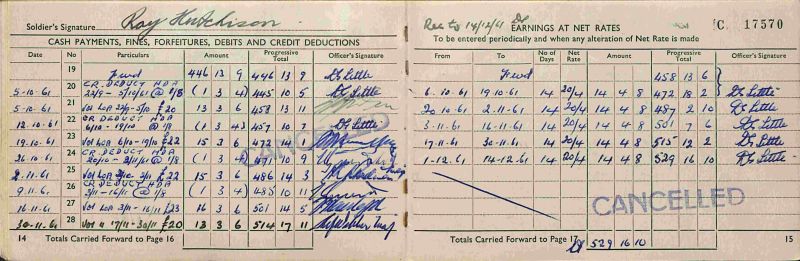 Soldier's Signature Roy Hutchison
CASH PAYMENTS, FINES, FORFEITURES, DEBITS AND CREDIT DEDUCTIONS
Date No Particulars Amount Progressive Total Officer's Signature
19 Fwd 446 13 9 446 13 9 Little
5-10-61 20 CR. DEDUCT NDA 22/9 - 5/10/61 @ 1/8 (1 3 4) 445 10 5 Little
5-10-61 21 13 3 6 458 13 11
12.10.61 22 CR DEDUCT NDA 6/10 - 19/10 @ 1/8 (1 3 4) 457 10 7 Little
19.10.61 23 6/10 - 19/10 £22 15 3 6 472 14 1
26.10.61 24 CR DEDUCT NDA 20/10 - 2/11/61 @ 1/8 (1 3 4) 471 10 9
2.11.61 25 15 3 6 486 14 3
9.11.61 26 CR DEDUCT NDA 3/11 - 16/11 @ 1/8 (1 3 4) 485 10 11
16.11.61 27 3/11 - 16/11 £23 16 3 6 501 14 5
30-11-61 28 17/11 - 30/11 £20 13 3 6 514 17 11
CANCELLED
14 Totals Carried Forward to Page 16
Rec to 14/12/61 EARNINGS AT NET RATES C. 17570
To be entered periodically and when any alteration of Net Rate is made
From To No of Days Net Rate Amount Progressive Total Officer's Signature
Fwd 458 13 6
6.10.61 19.10.61 14 20/4 14 4 8 472 18 2 Little
20.10.61 2.11.61 14 20/4 14 4 8 487 2 10 Little
3-11-61 16-11-61 14 20/4 14 4 8 501 7 6 Little
17-11-61 30-11-61 14 20/4 14 4 8 515 12 2 Little
1-12.61 14-12-61 14 20/4 14 4 8 529 16 10 Little
CANCELLED
Totals Carried Forward to Page 17 529 16 10 15